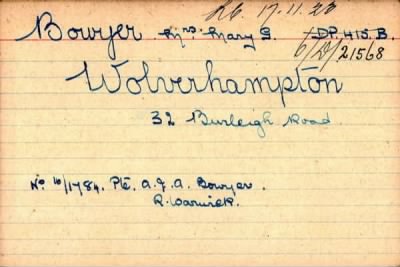 R.C. 17.11.20
Bowyer Mrs Mary G. DP.415.B.
6/D/21568
Wolverhampton
32 Burleigh Road
No 16/1784. Pte. A.J.A. Bowyer.
R. Warwick.